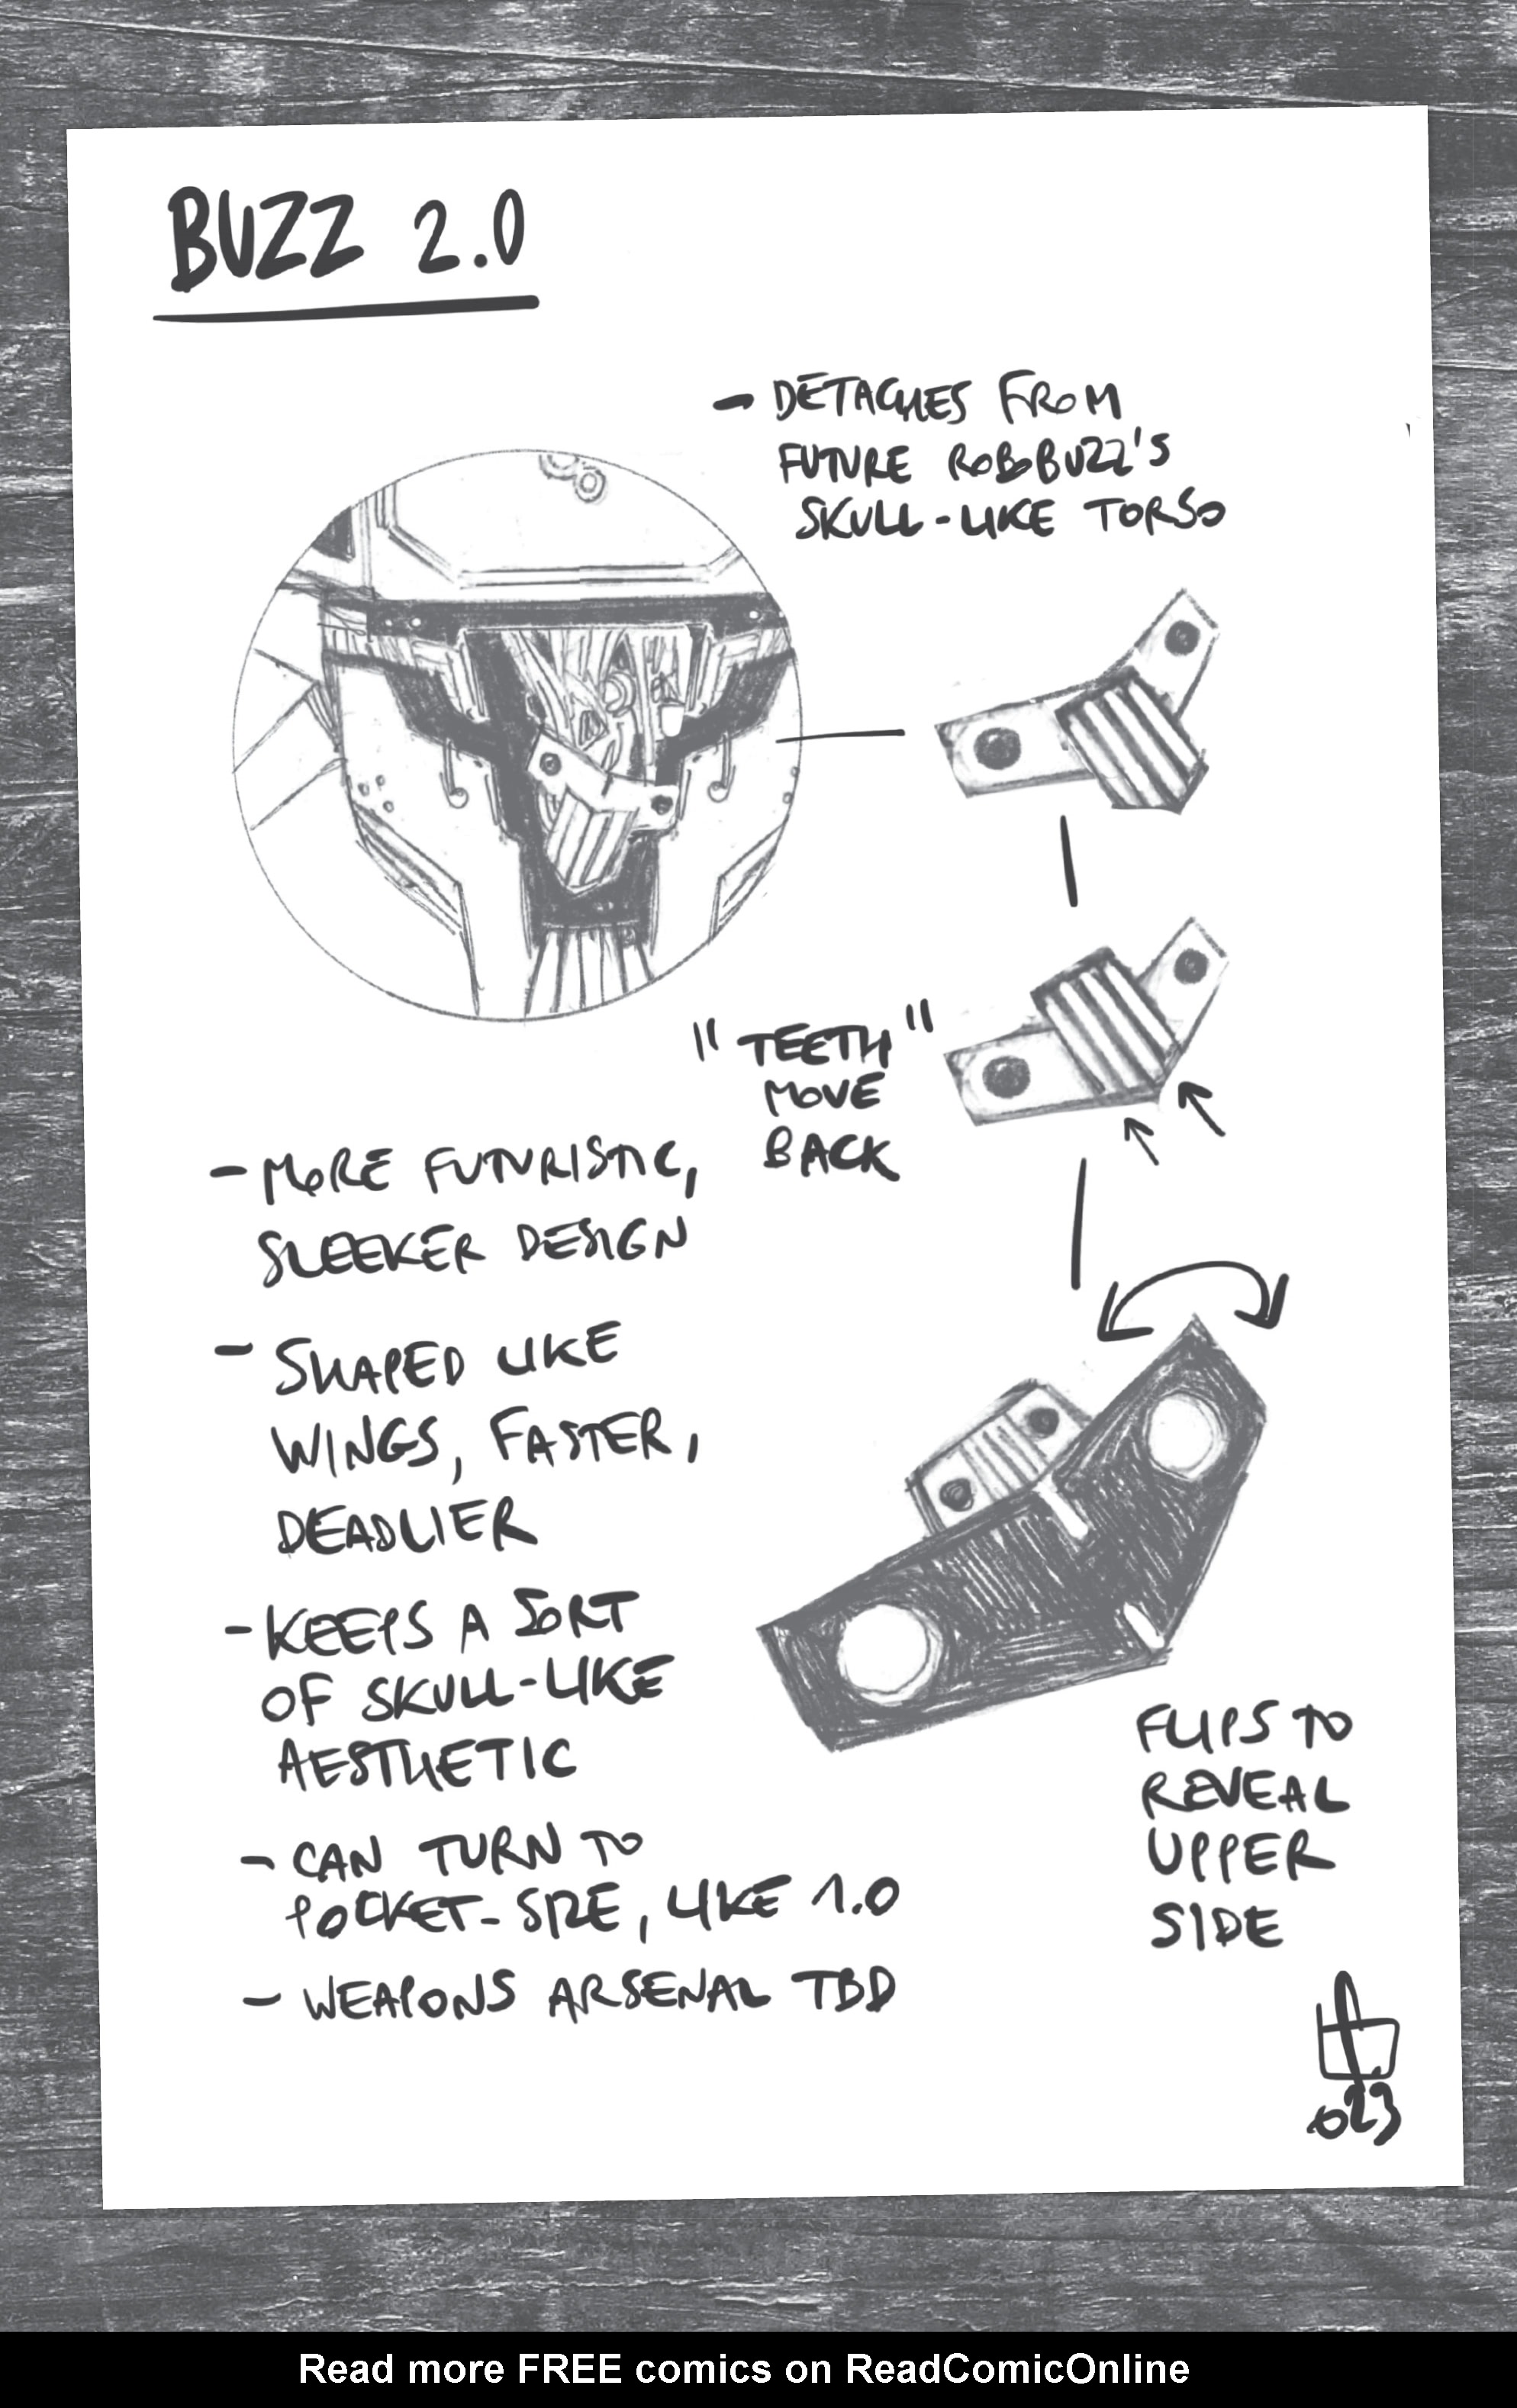 BUZZ 2.0
- DETACHES FROM
FUTURE ROBOBUZZ'S
SKULL-LIKE TORSO
"TEETH"
MOVE
BACK
- MORE FUTURISTIC,
SLEEKER DESIGN
- SHAPED LIKE
WINGS, FASTER,
DEADLIER
- KEEPS A SORT
OF SKULL-LIKE
AESTHETIC
- CAN TURN TO
POCKET-SIZE, LIKE 1.0
- WEAPONS ARSENAL TBD
FLIPS TO
REVEAL
UPPER
SIDE
023
Read more FREE comics on ReadComicOnline